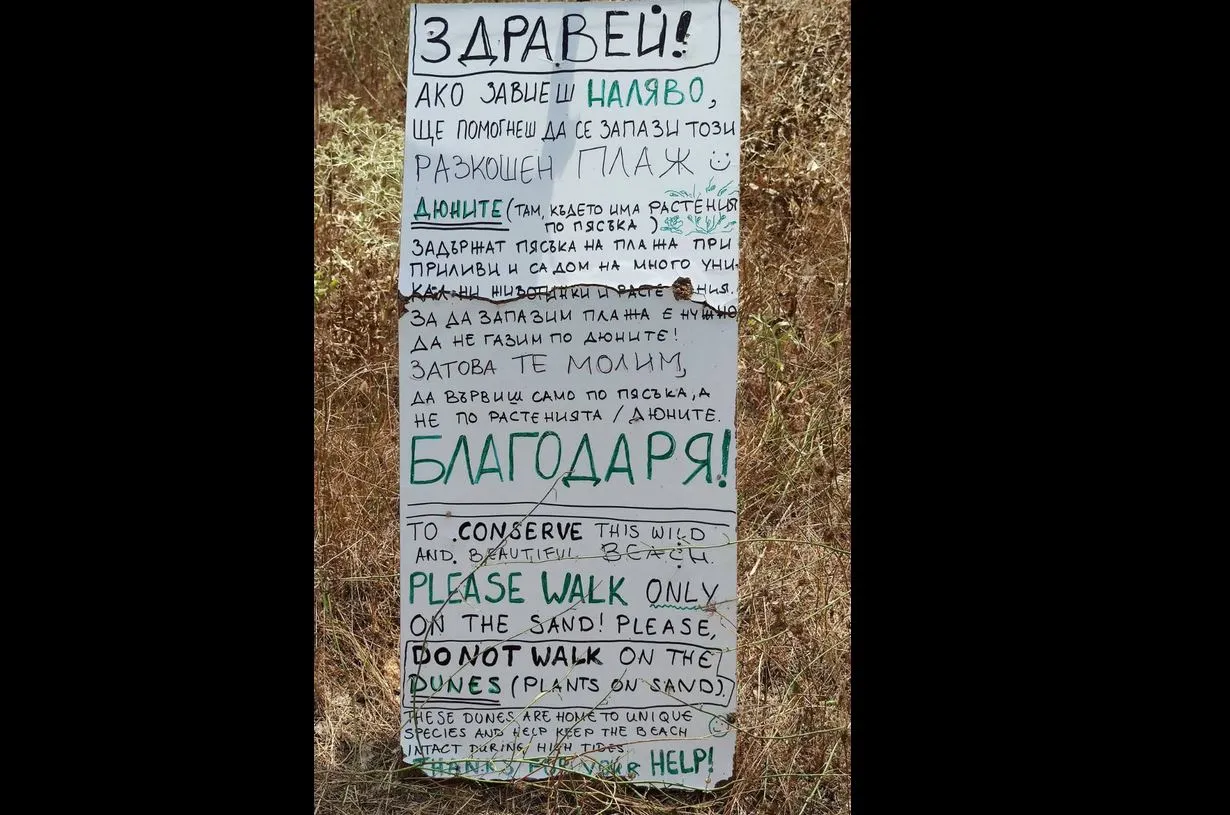 ЗДРАВЕЙ!
АКО ЗАВИЕШ НАЛЯВО,
ЩЕ ПОМОГНЕШ ДА СЕ ЗАПАЗИ ТОЗИ
РАЗКОШЕН ПЛАЖ
ДЮНИТЕ (ТАМ, КЪДЕТО ИМА РАСТЕНИЯ
ПО ПЯСЪКА)
ЗАДЪРЖАТ ПЯСЪКА НА ПЛАЖА ПРИ
ПРИЛИВИ И СА ДОМ НА МНОГО УНИ-
КАЛНИ ЖИВОТИНКИ И РАСТЕНИЯ.
ЗА ДА ЗАПАЗИМ ПЛАЖА Е НУЖНО
ДА НЕ ГАЗИМ ПО ДЮНИТЕ!
ЗАТОВА ТЕ МОЛИМ,
ДА ВЪРВИШ САМО ПО ПЯСЪКА, А
НЕ ПО РАСТЕНИЯТА / ДЮНИТЕ.
БЛАГОДАРЯ!
TO CONSERVE THIS WILD
AND BEAUTIFUL BEACH
PLEASE WALK ONLY
ON THE SAND! PLEASE,
DO NOT WALK ON THE
DUNES (PLANTS ON SAND).
THESE DUNES ARE HOME TO UNIQUE
SPECIES AND HELP KEEP THE BEACH
INTACT DURING HIGH TIDES.
THANKS FOR YOUR HELP!